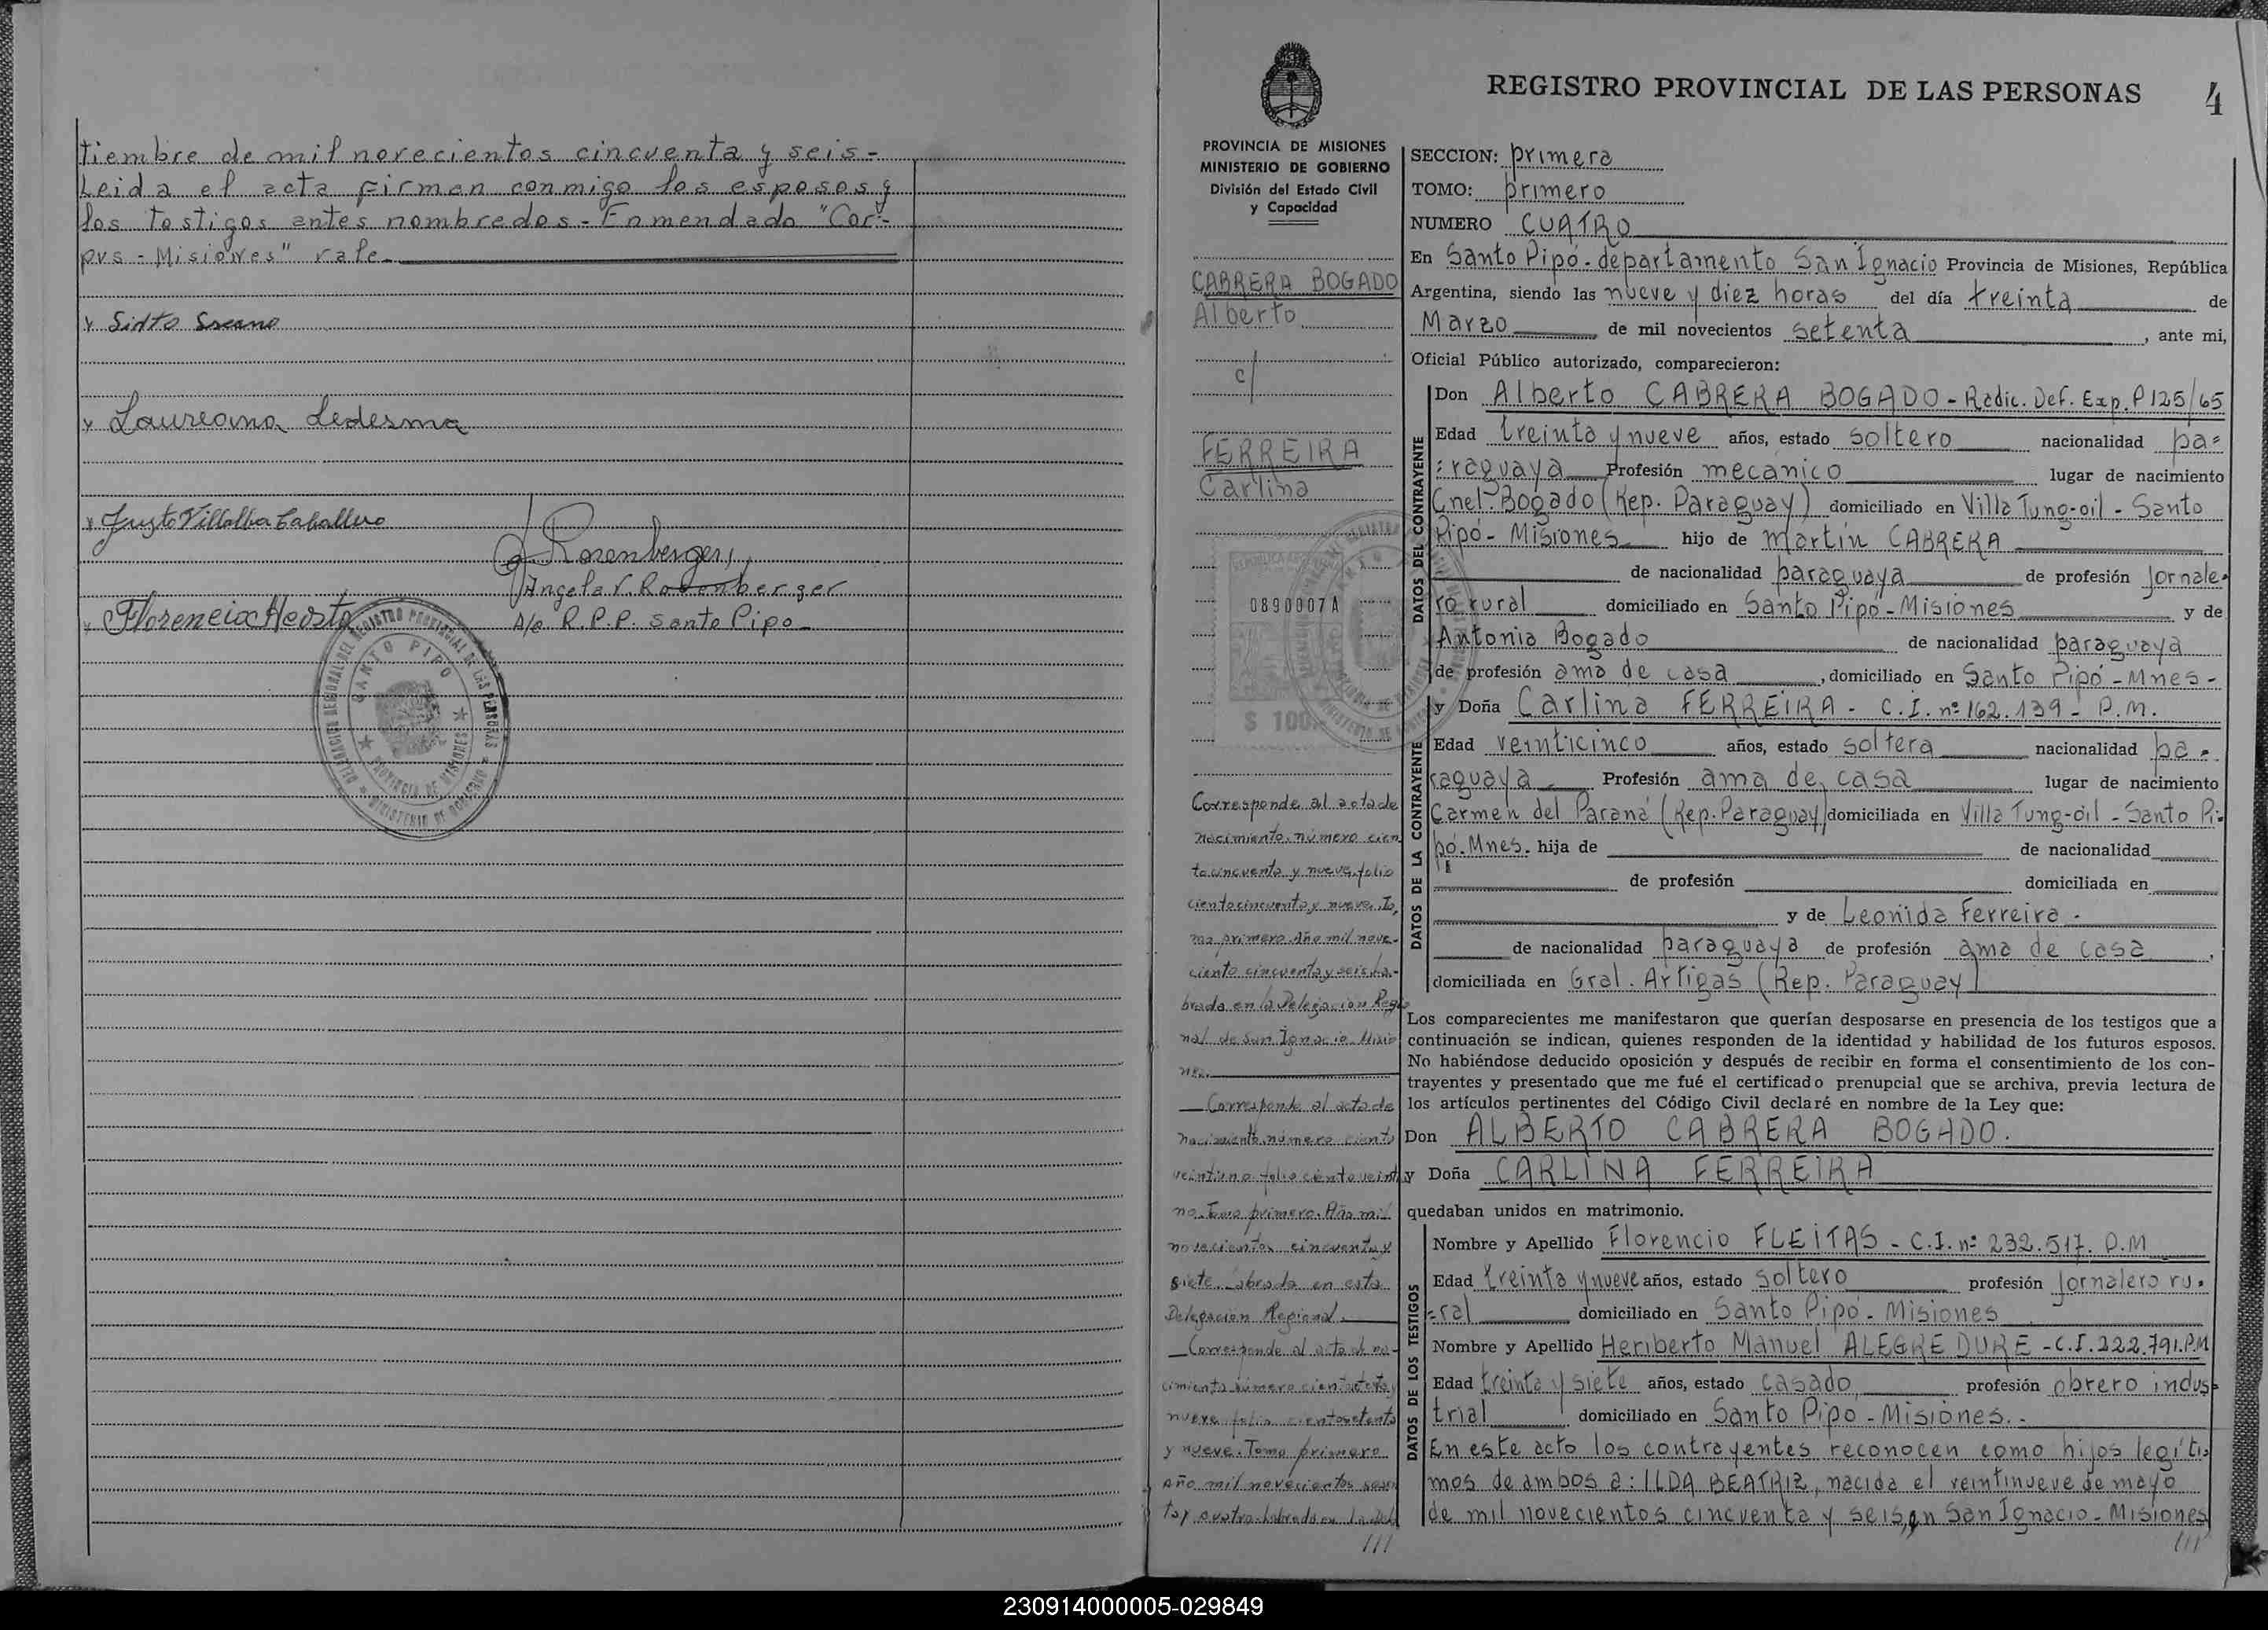 tiembre de mil novecientos cincuenta y seis -
Leida el acta firman conmigo los esposos y
los testigos antes nombrados - Enmendado "Cor-
pus - Misiones" vale
Laureana Ledesma
Justo Villalba Caballero
Rosenberger
Angela V. Rosenberger
A/c R.P.P. Santo Pipo
DELEGACION REGIONAL DEL REGISTRO PROVINCIAL DE LAS PERSONAS
SANTO PIPO
PROVINCIA DE MISIONES
MINISTERIO DE GOBIERNO
REGISTRO PROVINCIAL DE LAS PERSONAS 4
PROVINCIA DE MISIONES
MINISTERIO DE GOBIERNO
División del Estado Civil
y Capacidad
CABRERA BOGADO
Alberto
c/
FERREIRA
Carlina
0890007A
$ 100
Corresponde al acta de
nacimiento número cien
to cincuenta y nueve folio
ciento cincuenta y nueve To
mo primero Año mil nove-
ciento cincuenta y seis La-
brada en la Delegación Regio
nal de San Ignacio Misio
nes.
Corresponde al acta de
nacimiento número ciento
veintiuno folio ciento veintiu
no. Tomo primero. Año mil
novecientos cincuenta y
siete. Labrada en esta
Delegación Regional.
Corresponde al acta de na-
cimiento número ciento setenta y
nueve folio ciento setenta
y nueve. Tomo primero
Año mil novecientos sesen
ta y cuatro. Labrada en
///
SECCION: primera
TOMO: primero
NUMERO CUATRO
En Santo Pipó - departamento San Ignacio Provincia de Misiones, República
Argentina, siendo las nueve y diez horas del día treinta de
Marzo de mil novecientos setenta, ante mi,
Oficial Público autorizado, comparecieron:
DATOS DEL CONTRAYENTE
Don Alberto CABRERA BOGADO - Radic. Def. Exp. P 125/65
Edad treinta y nueve años, estado soltero nacionalidad pa=
=raguaya Profesión mecánico lugar de nacimiento
Cnel. Bogado (Rep. Paraguay) domiciliado en Villa Tung-oil - Santo
Pipó - Misiones hijo de Martín CABRERA
de nacionalidad paraguaya de profesión jornale-
ro rural domiciliado en Santo Pipó - Misiones y de
Antonia Bogado de nacionalidad paraguaya
de profesión ama de casa, domiciliado en Santo Pipó - Mnes -
DATOS DE LA CONTRAYENTE
y Doña Carlina FERREIRA - C.I. nº 162.139 - P.M.
Edad veinticinco años, estado soltera nacionalidad pa-
raguaya Profesión ama de casa lugar de nacimiento
Carmen del Paraná (Rep. Paraguay) domiciliada en Villa Tung-oil - Santo Pi-
pó. Mnes. hija de de nacionalidad
de profesión domiciliada en
y de Leonida Ferreira -
de nacionalidad paraguaya de profesión ama de casa,
domiciliada en Gral. Artigas (Rep. Paraguay)
Los comparecientes me manifestaron que querían desposarse en presencia de los testigos que a
continuación se indican, quienes responden de la identidad y habilidad de los futuros esposos.
No habiéndose deducido oposición y después de recibir en forma el consentimiento de los con-
trayentes y presentado que me fué el certificado prenupcial que se archiva, previa lectura de
los artículos pertinentes del Código Civil declaré en nombre de la Ley que:
Don ALBERTO CABRERA BOGADO.
y Doña CARLINA FERREIRA
quedaban unidos en matrimonio.
DATOS DE LOS TESTIGOS
Nombre y Apellido Florencio FLEITAS - C.I. nº 232.517. P.M
Edad treinta y nueve años, estado soltero profesión jornalero ru-
=ral domiciliado en Santo Pipó - Misiones
Nombre y Apellido Heriberto Manuel ALEGRE DURE - C.I. 222.791.P.M
Edad treinta y siete años, estado casado profesión obrero indus-
trial domiciliado en Santo Pipo - Misiones. -
En este acto los contrayentes reconocen como hijos legíti-
mos de ambos a: ILDA BEATRIZ, nacida el veintinueve de mayo
de mil novecientos cincuenta y seis, en San Ignacio - Misiones
///
230914000005-029849